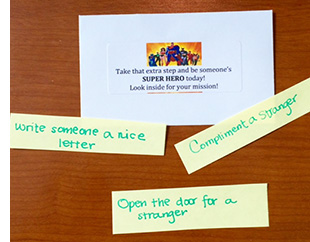 Take that extra step and be someone's
SUPER HERO today!
Look inside for your mission!
Write someone a nice
letter
Compliment a stranger
Open the door for a
stranger